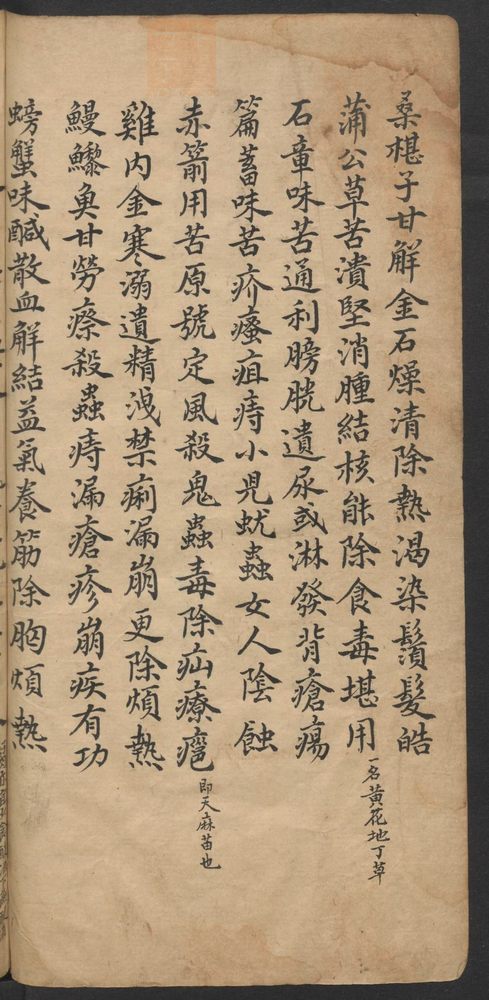 桑椹子甘解金石燥清除熱渴染鬚髮皓
蒲公草苦潰堅消腫結核能除食毒堪用一名黃花地丁草
石韋味苦通利膀胱遺尿或淋發背瘡瘍
篇蓄味苦疥瘙疽痔小児蚘蟲女人陰蝕
赤箭用苦原號定風殺鬼蟲毒除疝療癰即天麻苗也
雞内金寒溺遺精洩禁痢漏崩更除煩熱
鰻鱺魚甘勞瘵殺蟲痔漏瘡疹崩疾有功
螃蟹味醎散血解結益氣養筋除胸煩熱